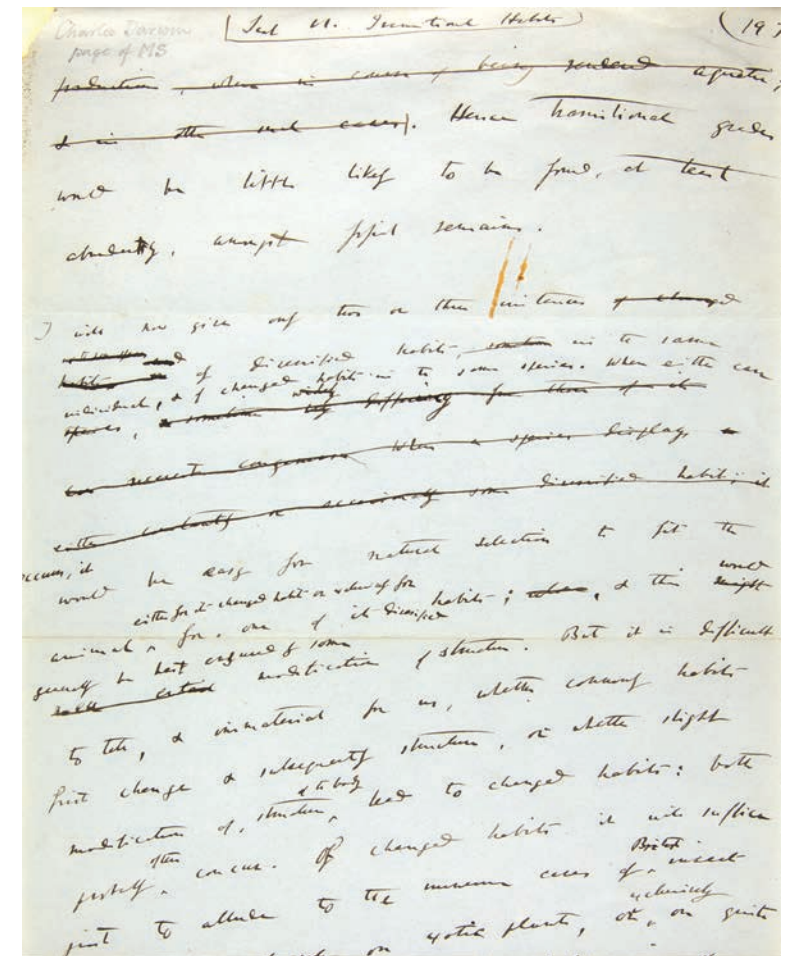 Charles Darwin
page of MS
Sect VI. Transitional Habits (19
production, when in course of being rendered aquatic,
& in other such cases). Hence transitional grades
would be little likely to be found, at least
abundantly, amongst fossil remains.
I will now give only two or three instances of changed
of diversified habits, in the same
habits
individual, & of changed habits in the same species. When either case
species, & sometimes widely differing from those of its
own nearest congeners. When a species displays
either constantly or occasionally some diversified habit; it
occurs, it
would be easy for natural selection to fit the
would
either for its changed habit or solely for
animal for one of its diversified habits; & this might
generally be best ensured by some
modification of structure. But it is difficult
to tell, & immaterial for us, whether commonly habits
first change & subsequently structure, or whether slight
& the body
modification of structure, lead to changed habits: both
often
probably concur. Of changed habits it will suffice
British
just to allude to the numerous cases of insect
exclusively
on exotic plants, or, on quite